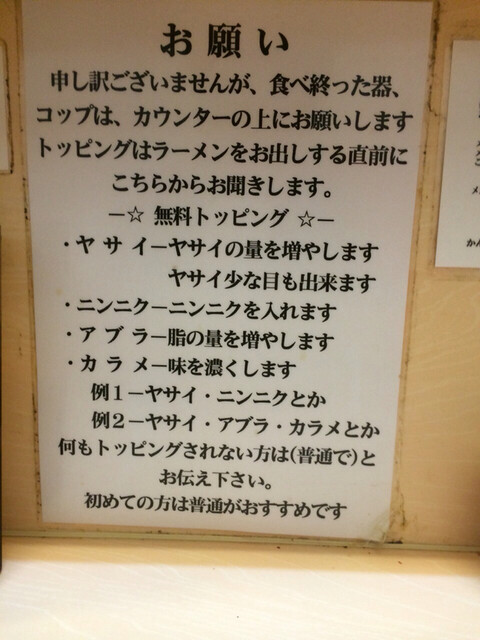 お願い
申し訳ございませんが、食べ終った器、
コップは、カウンターの上にお願いします
トッピングはラーメンをお出しする直前に
こちらからお聞きします。
−☆ 無料トッピング ☆−
・ヤ サ イ−ヤサイの量を増やします
ヤサイ少な目も出来ます
・ニンニク−ニンニクを入れます
・ア ブ ラ−脂の量を増やします
・カ ラ メ−味を濃くします
例1−ヤサイ・ニンニクとか
例2−ヤサイ・アブラ・カラメとか
何もトッピングされない方は(普通で)と
お伝え下さい。
初めての方は普通がおすすめです